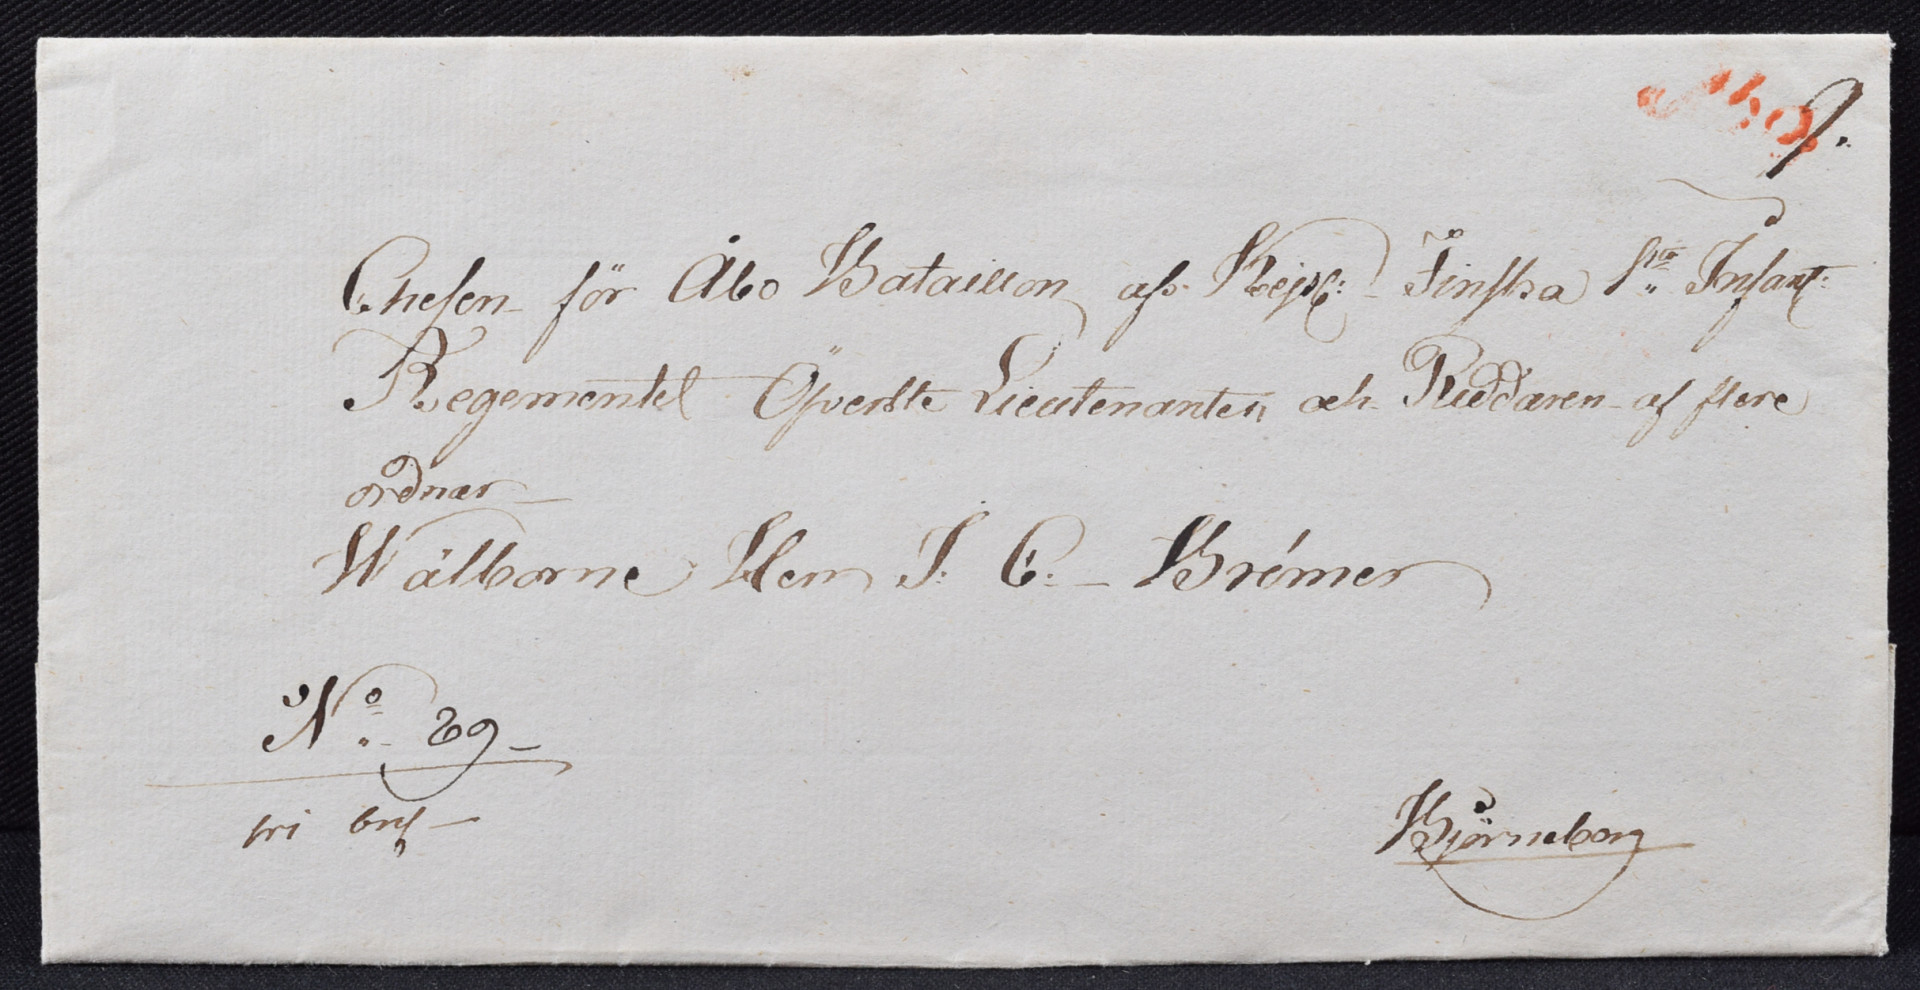 Åbo
Chefen för Åbo Batailion af Kejs: Finska 1sta Infant:
Regementet Öfverste Lieutenanten och Riddaren af flere
ordnar
Wälborne Herr J. C. Brémer
No 89
fri bref
Björneborg